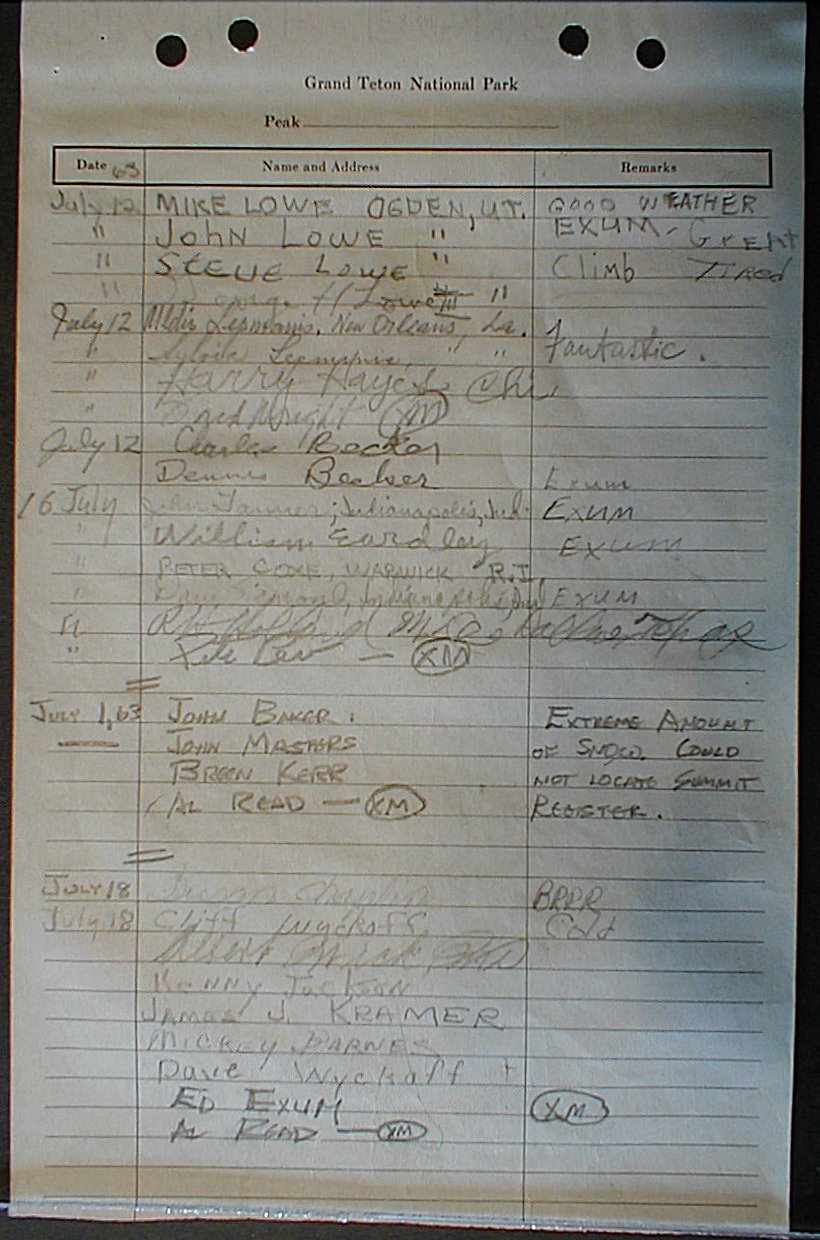 Grand Teton National Park
Peak
Date 63 Name and Address Remarks
July 12 MIKE LOWE OGDEN, UT. GOOD WEATHER
" JOHN LOWE " EXUM - GREAT
" STEVE LOWE " Climb TIRED
" George H Lowe III "
July 12 Lepmanis, New Orleans, La.
" " " Fantastic.
" Harry Hayes Chi.
" Fred Wright XM
July 12 Charles Becker
Dennis Becker Exum
16 July John ; Indianapolis, Ind. EXUM
" William Eardley EXUM
" PETER COXE, WARWICK R.I.
" Indianapolis, Ind EXUM
"
" Pete Lev — XM
JULY 1, 63 JOHN BAKER. EXTREME AMOUNT
JOHN MASTERS OF SNOW. COULD
BREEN KERR NOT LOCATE SUMMIT
AL READ — XM REGISTER.
JULY 18 BRRR
July, 18 Cliff Wyckoff Cold
KENNY JACKSON
JAMES J. KRAMER
MICKEY BARNES
Dave Wyckoff
ED EXUM XM
AL READ — XM